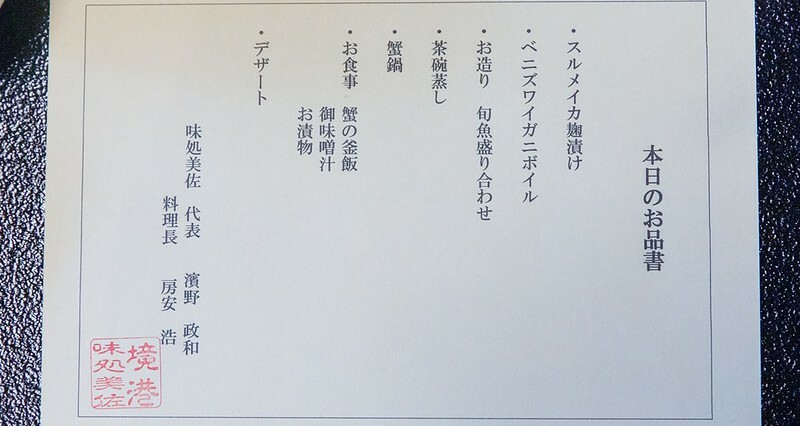 本日のお品書
・スルメイカ麹漬け
・ベニズワイガニボイル
・お造り　旬魚盛り合わせ
・茶碗蒸し
・蟹鍋
・お食事　蟹の釜飯
御味噌汁
お漬物
・デザート
味処美佐　代表　濱野　政和
料理長　房安　浩
境港
味処美佐